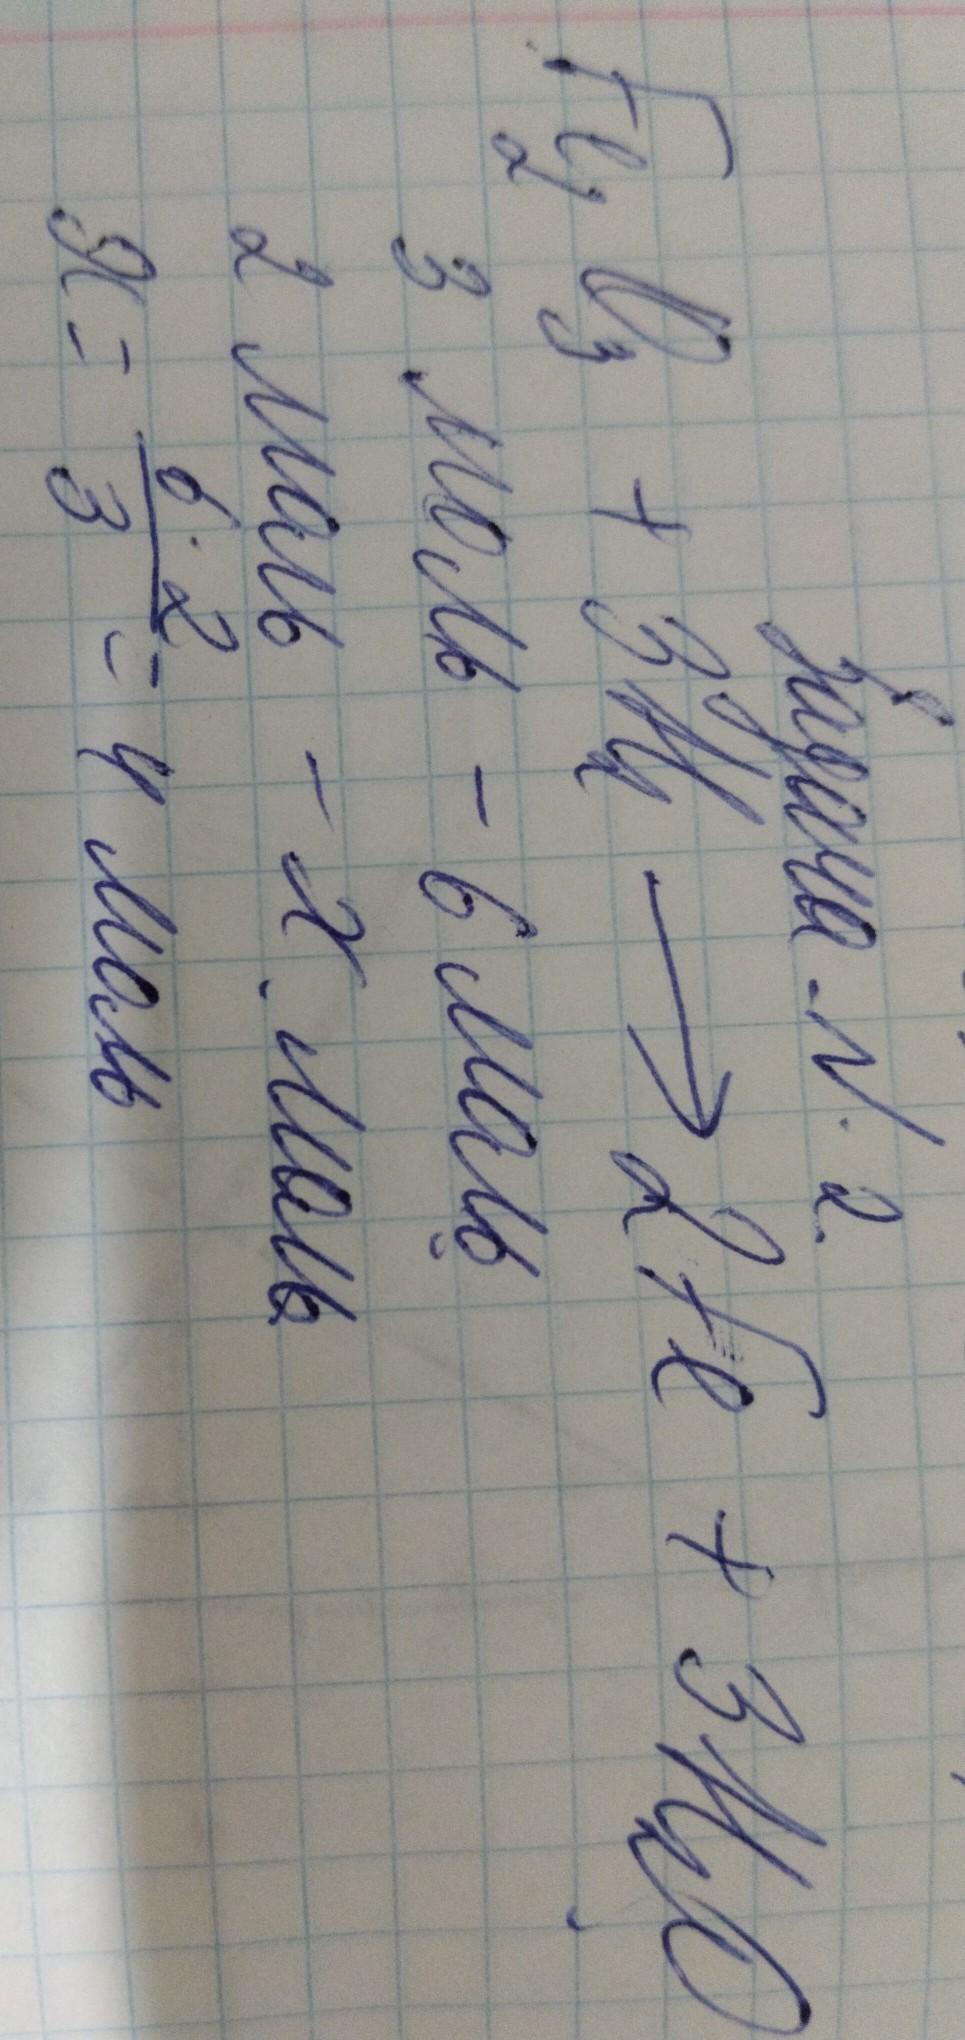 Задача N. 2.
Fe₂O₃ + 3H₂ → 2Fe + 3H₂O
3 моль - 6 моль
2 моль - x моль
x = 6·2/3 = 4 моль